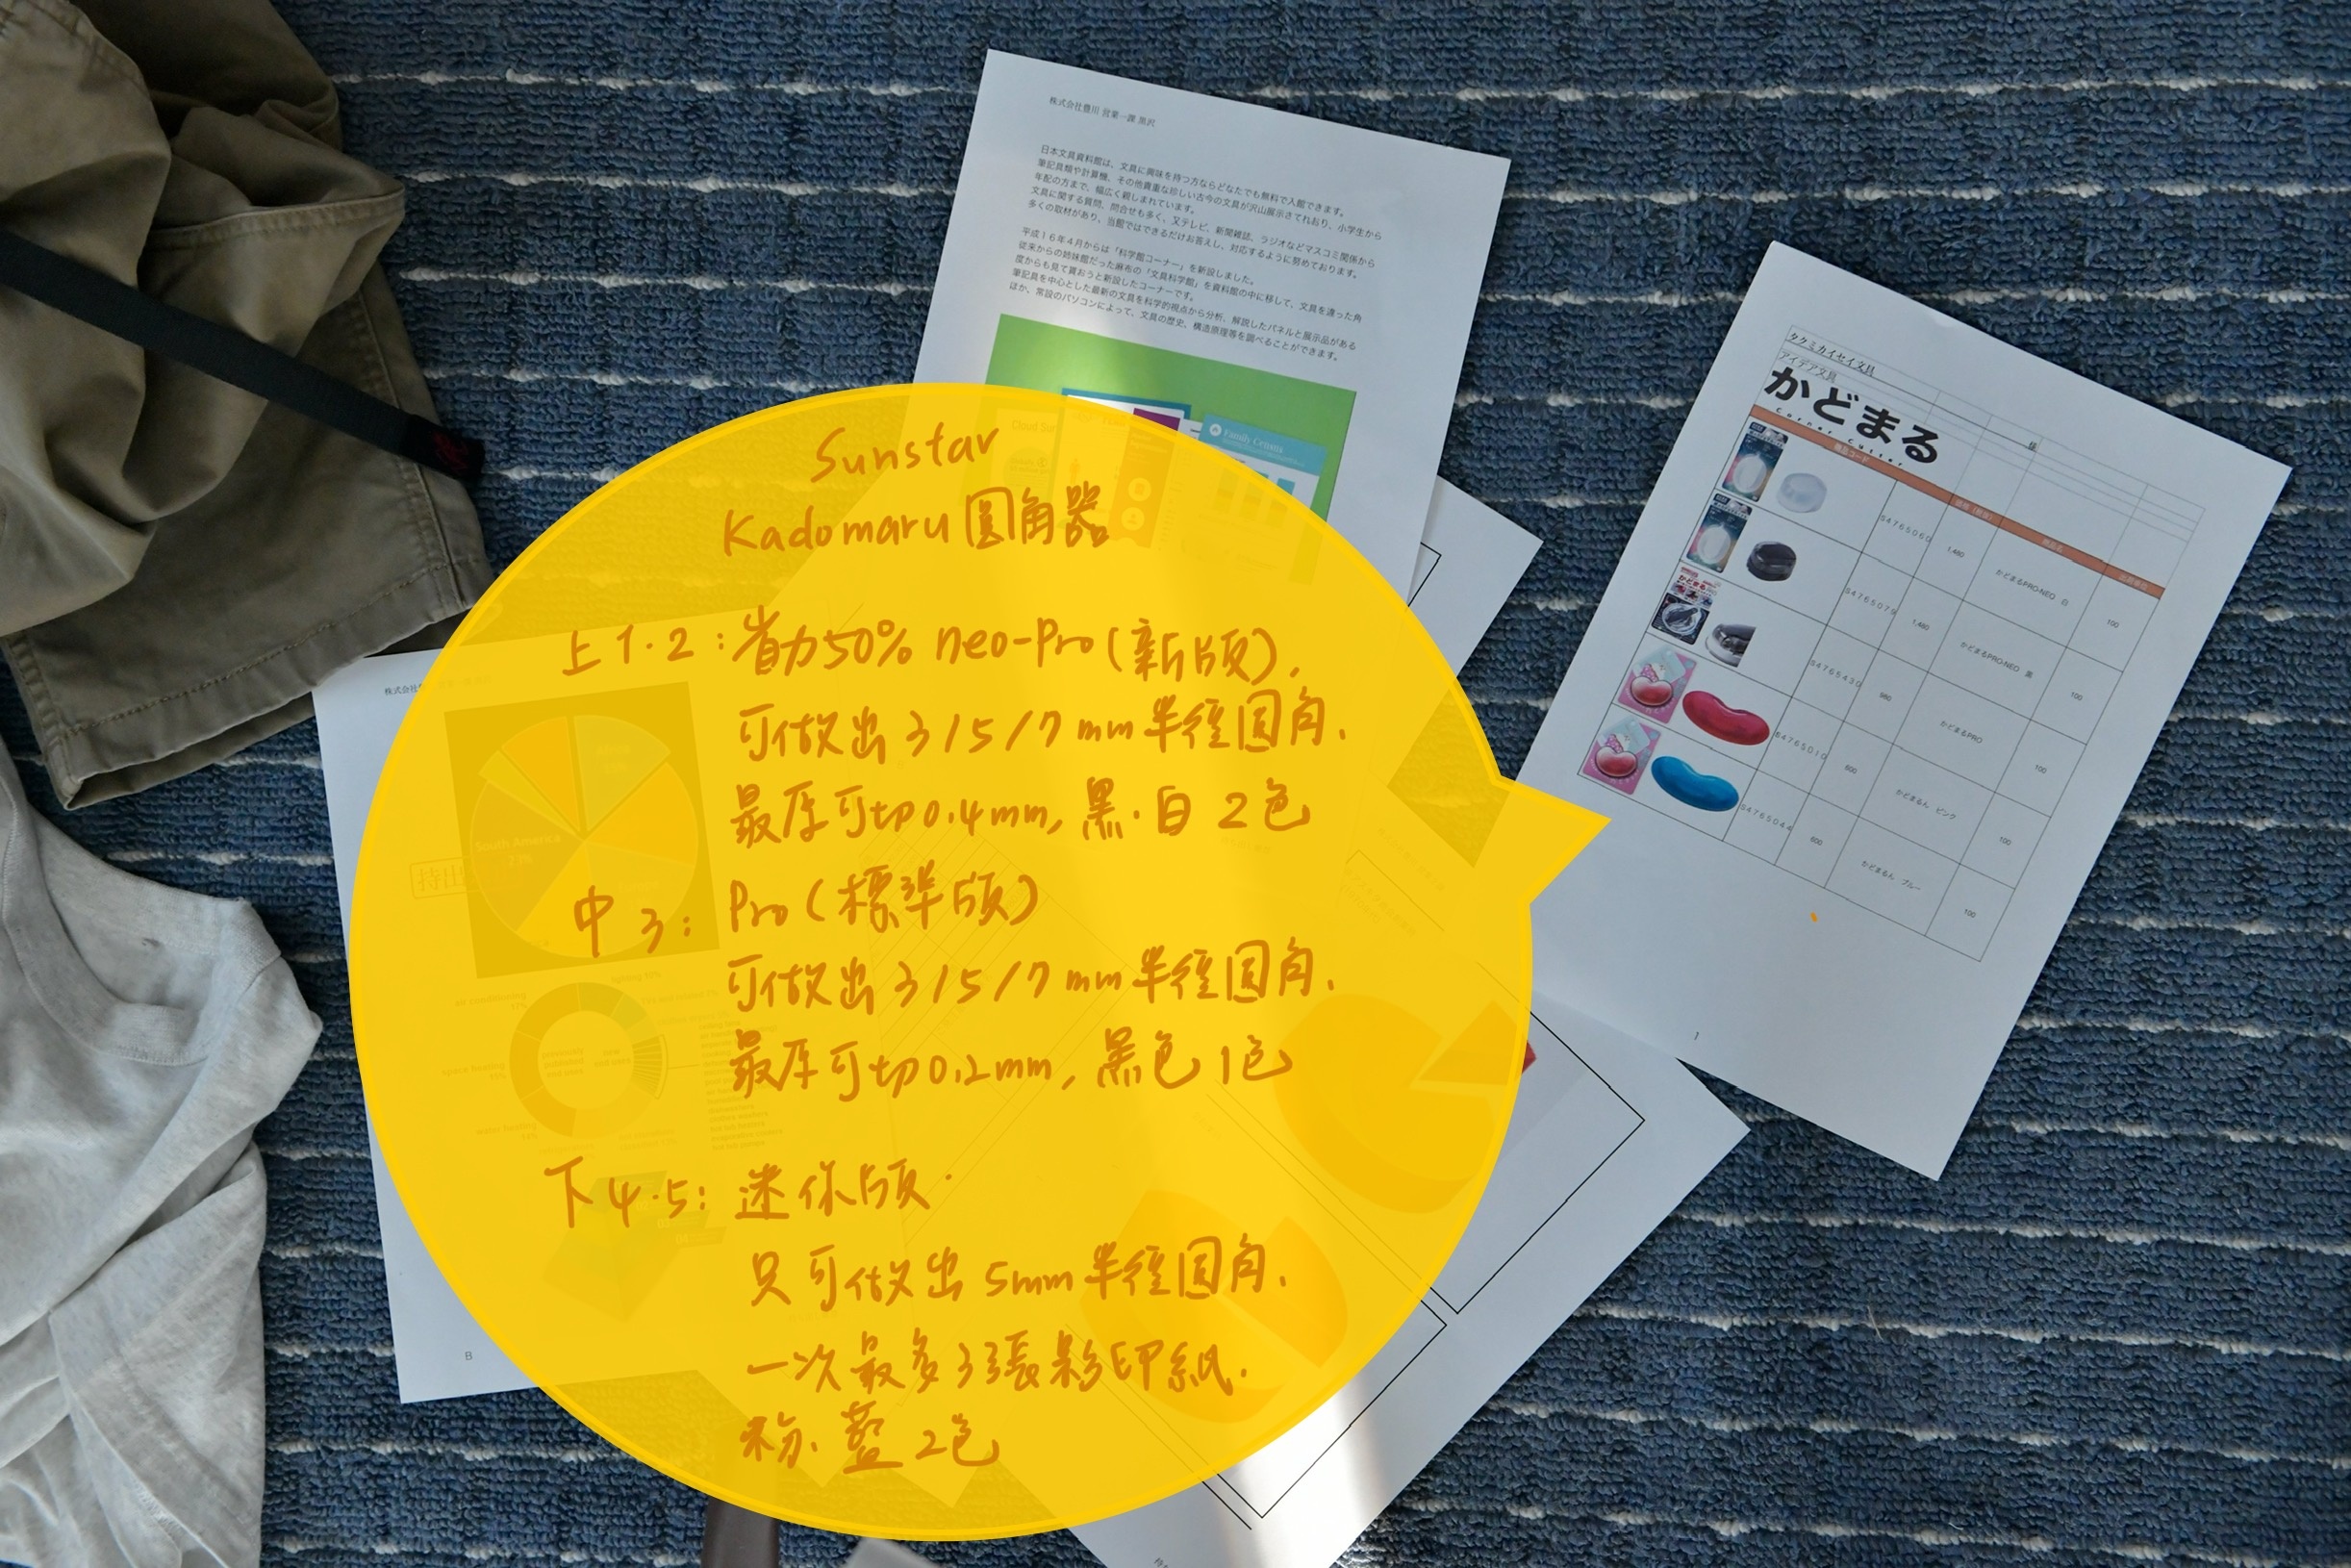 Sunstar
Kadomaru 圓角器
上1.2：省力50% neo-Pro(新版),
可做出3/5/7mm半徑圓角.
最厚可切0.4mm, 黑.白 2色
中3: Pro(標準版)
可做出3/5/7mm半徑圓角.
最厚可切0.2mm, 黑色1色
下4.5: 迷你版.
只可做出5mm半徑圓角.
一次最多3張影印紙.
粉.藍2色
株式会社豊川 営業一課 黒沢
日本文具資料館は、文具に興味を持つ方ならどなたでも無料で入館できます。
筆記具類や計算機、その他貴重な珍しい古今の文具が沢山展示さてれおり、小学生から
年配の方まで、幅広く親しまれています。
文具に関する質問、問合せも多く、又テレビ、新聞雑誌、ラジオなどマスコミ関係から
多くの取材があり、当館ではできるだけお答えし、対応するように努めております。
平成16年4月からは「科学館コーナー」を新設しました。
従来からの姉妹館だった麻布の「文具科学館」を資料館の中に移して、文具を違った角
度からも見て貰おうと新設したコーナーです。
筆記具を中心とした最新の文具を科学的視点から分析、解説したパネルと展示品がある
ほか、常設のパソコンによって、文具の歴史、構造原理等を調べることができます。
Family Census
タクミカイセイ文具
アイデア文具
かどまる
Corner Cutter
様
商品コード
S4765060 1,480 かどまるPRO-NEO 白 100
S4765079 1,480 かどまるPRO-NEO 黒 100
S4765430 980 かどまるPRO 100
S4765010 600 かどまるん ピンク 100
S4765044 600 かどまるん ブルー 100
1
株式会社
South America
23%
持出
air conditioning
space heating
water heating
B